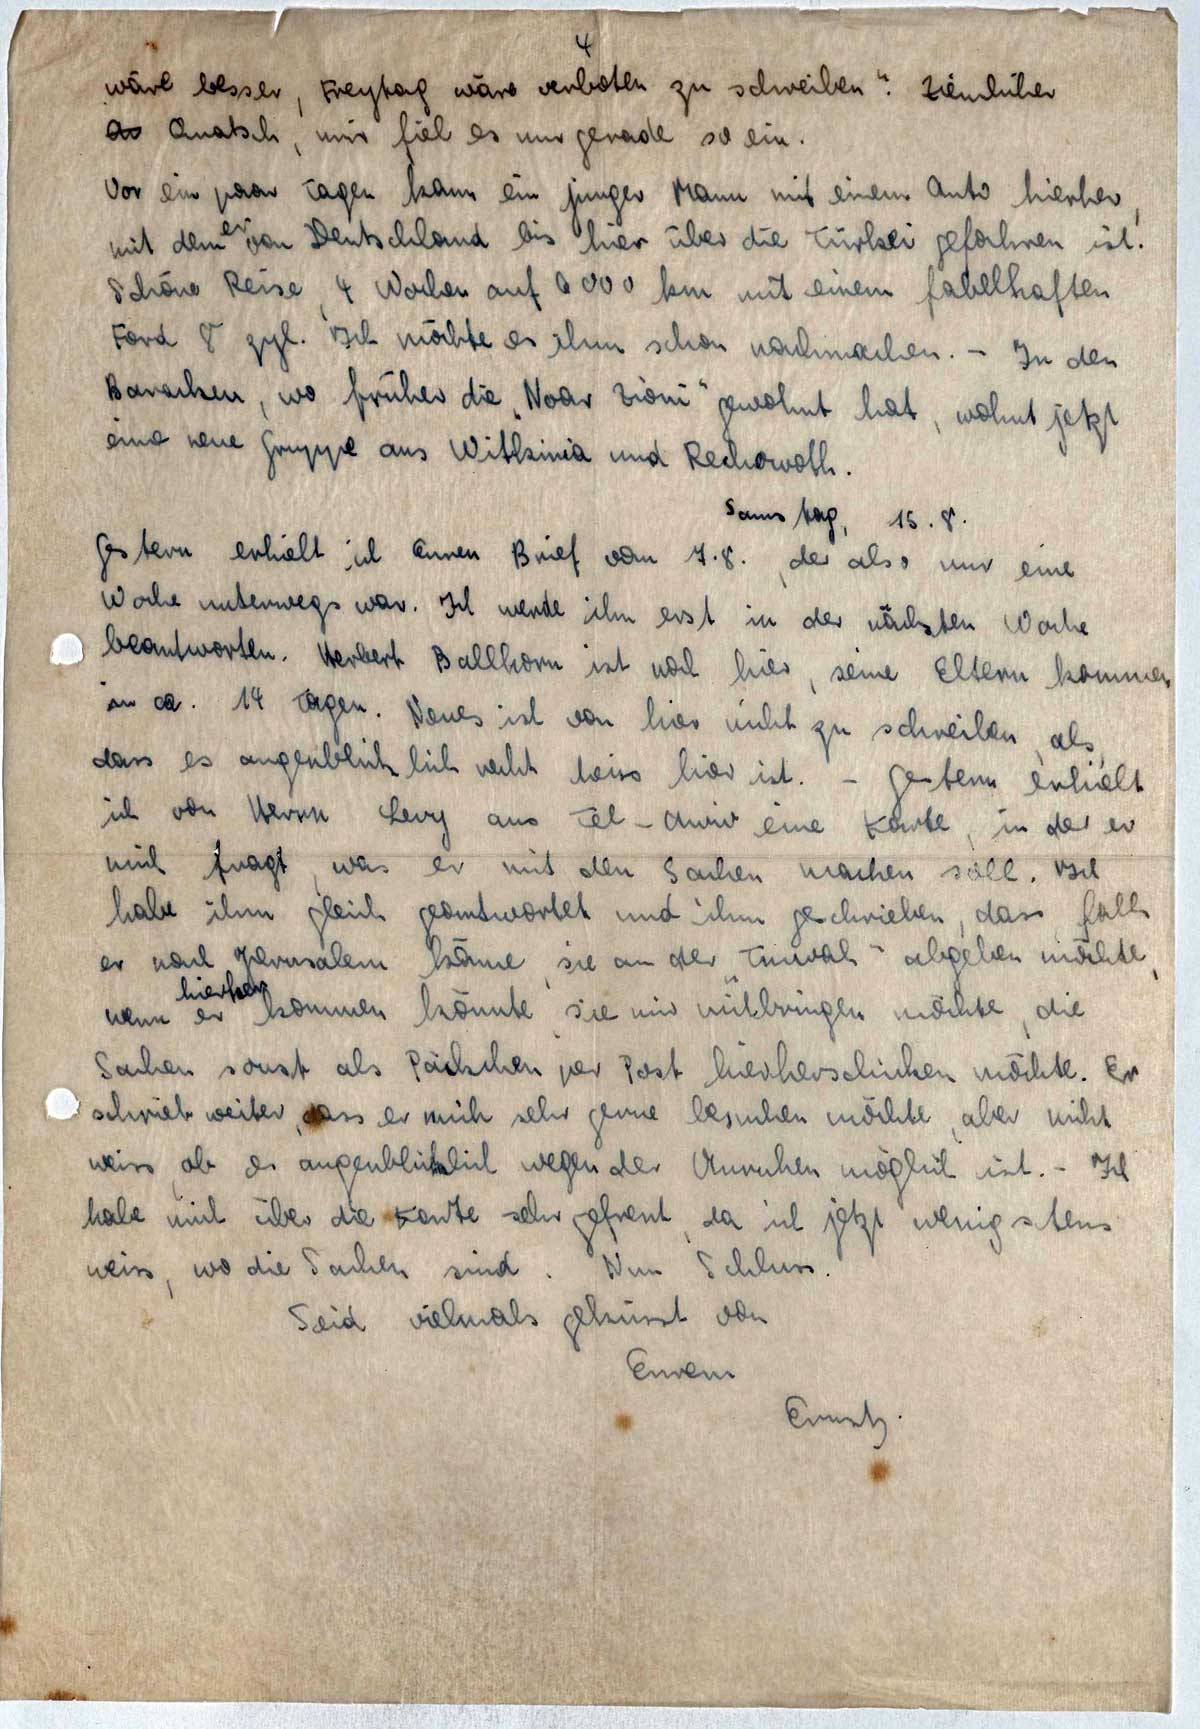 4
wäre besser, Freytag wäre verboten zu schreiben". Ziemlicher
Quatsch, mir fiel es nur gerade so ein.
Vor ein paar Tagen kam ein junger Mann mit einem Auto hierher,
mit dem er von Deutschland bis hier über die Türkei gefahren ist.
Schöne Reise, 4 Wochen auf 6000 km mit einem fabelhaften
Ford 8 zyl. Ich möchte es ihm schon nachmachen. - In den
Baracken, wo früher die „Noar Zioni" gewohnt hat, wohnt jetzt
eine neue Gruppe aus Withinia und Rechowoth.
Samstag, 15.8.
Gestern erhielt ich Euren Brief vom 7.8., der also nur eine
Woche unterwegs war. Ich werde ihn erst in der nächsten Woche
beantworten. Herbert Ballhorn ist noch hier, seine Eltern kommen
in ca. 14 Tagen. Neues ist von hier nicht zu schreiben, als,
dass es augenblicklich recht heiss hier ist. - Gestern erhielt
ich von Herrn Levy aus Tel-Awiw eine Karte, in der er
mich fragt, was er mit den Sachen machen soll. Ich
habe ihm gleich geantwortet und ihm geschrieben, dass, falls
er nach Jerusalem käme, sie an der „Tnuvah" abgeben möchte,
wenn er hierher kommen könnte, sie mir mitbringen möchte, die
Sachen sonst als Päckchen per Post hierherschicken möchte. Er
schrieb weiter, dass er mich sehr gerne besuchen möchte, aber nicht
weiss, ob es augenblicklich wegen der Unruhen möglich ist. - Ich
habe mich über die Karte sehr gefreut, da ich jetzt wenigstens
weiss, wo die Sachen sind. Nun Schluss.
Seid vielmals geküsst von
Eurem
Ernst.